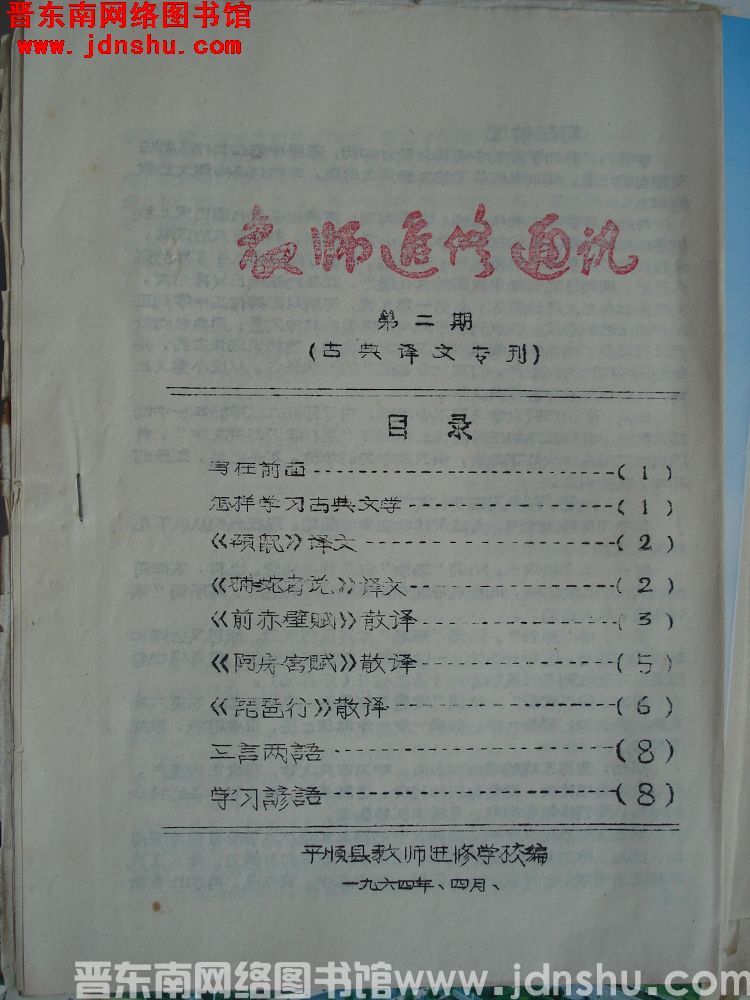 晋东南网络图书馆
www.jdnshu.com
教师进修通讯
第二期
(古典译文专刊)
目录
写在前面(1)
怎样学习古典文学(1)
《硕鼠》译文(2)
《捕蛇者说》译文(2)
《前赤壁赋》散译(3)
《阿房宫赋》散译(5)
《琵琶行》散译(6)
三言两語(8)
学习諺語(8)
平顺县教师进修学校编
一九六四年、四月、
晋东南网络图书馆www.jdnshu.com